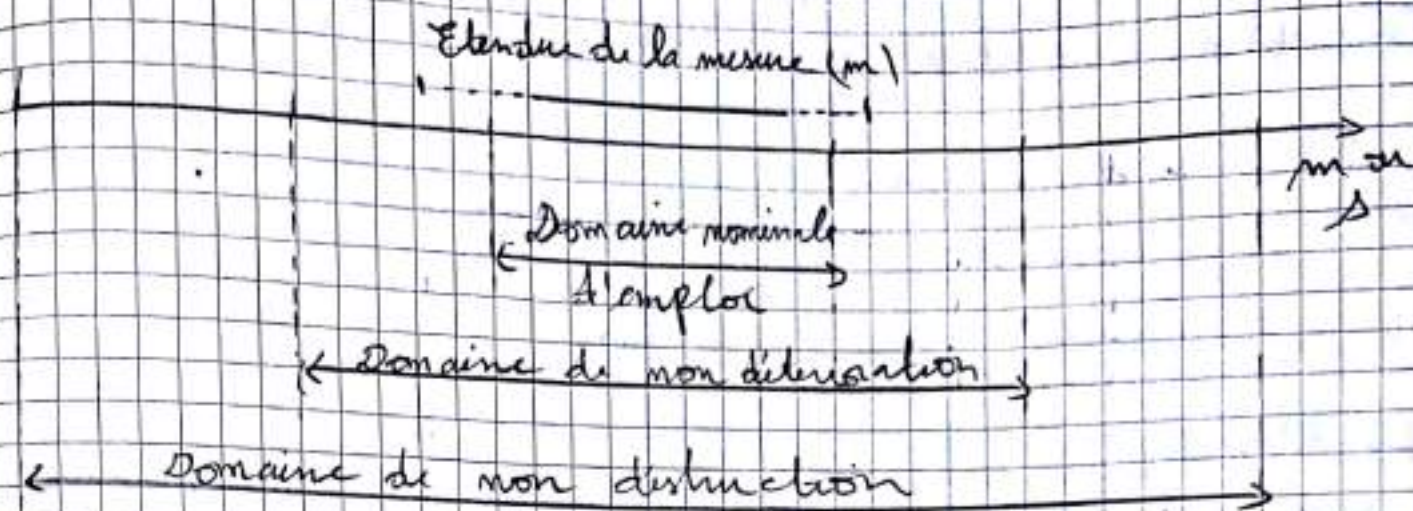 Etendue de la mesure (m)
m ou
s
Domaine nominale
d'emploi
Domaine de non déterioration
Domaine de non distruction